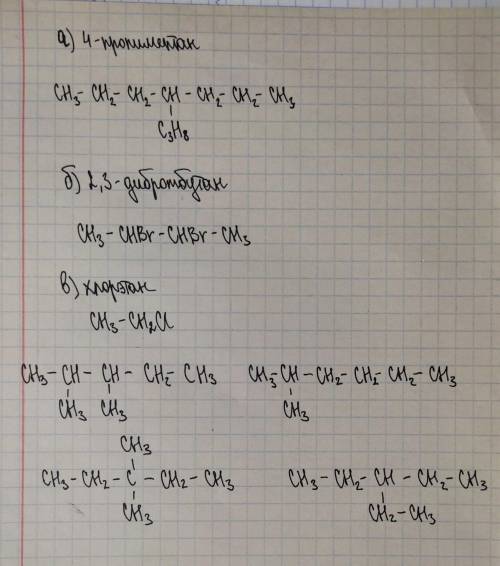 а) 4-пропилгептан
CH3-CH2-CH2-CH-CH2-CH2-CH3
C3H8
б) 2,3-дибромбутан
CH3-CHBr-CHBr-CH3
в) хлорэтан
CH3-CH2Cl
CH3-CH-CH-CH2-CH3
CH3 CH3
CH3-CH-CH2-CH2-CH2-CH3
CH3
CH3
CH3-CH2-C-CH2-CH3
CH3
CH3-CH2-CH-CH2-CH3
CH2-CH3